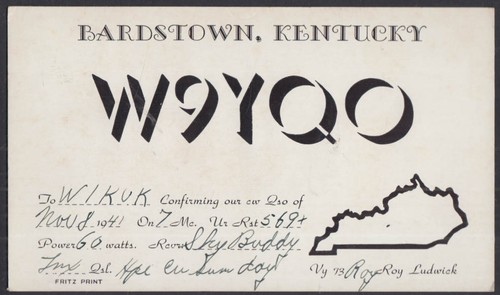 BARDSTOWN, KENTUCKY
W9YQO
To W1KUK Confirming our cw Qso of
Nov 8 1941 On 7 Mc. Ur Rst 569+
Power 60 watts. Recvr Sky Buddy
Tnx Qsl. Hpe Cu sum day!
Vy 73 Roy Roy Ludwick
FRITZ PRINT